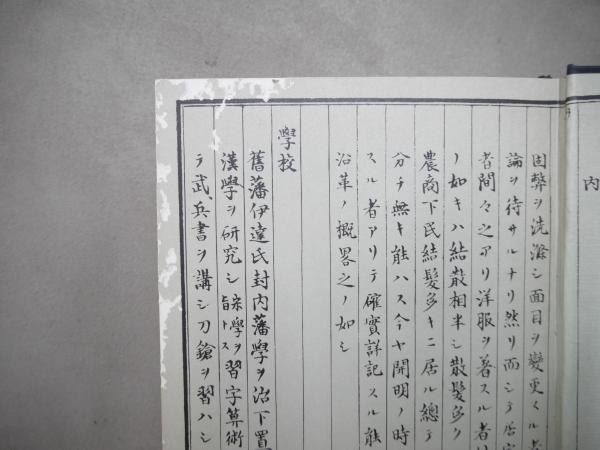 内
固弊ヲ洗滌シ面目ヲ變更スル
論ヲ待サルナリ然リ而シテ
者間々之アリ洋服ヲ着スル者
ノ如キハ結散相半シ散髪多ク
農商下民結髪多キニ居ル總テ
分チ無キ能ハス今ヤ開明ノ時
スル者アリテ確實詳記スル能
沿革ノ概畧之ノ如シ
學校
舊藩伊達氏封内藩學ヲ治下置
漢學ヲ研究シ宋學ヲ旨トス習字算術
テ武兵書ヲ講シ刀鎗ヲ習ハシ